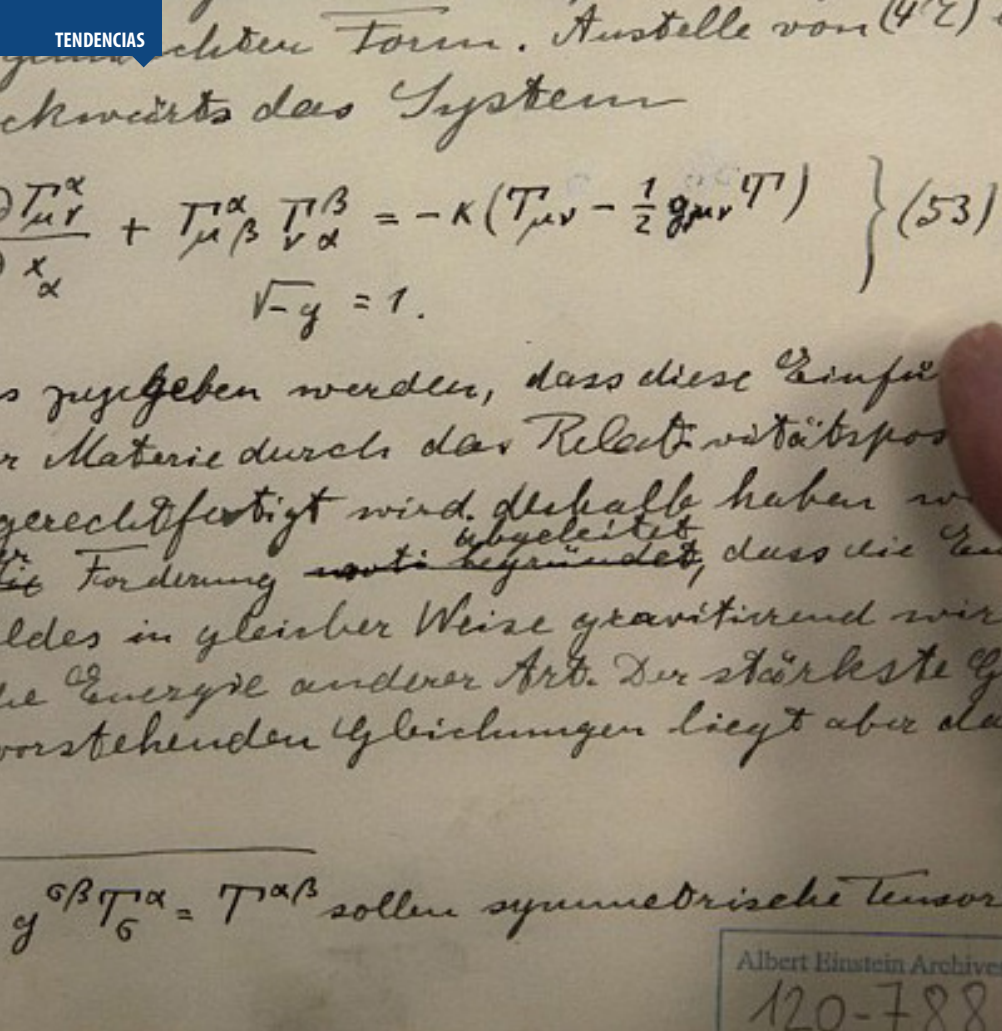 TENDENCIAS
chten Form. Anstelle von (47)
ckwärts das System
∂Γ^α_μν / ∂x_α + Γ^α_μβ Γ^β_να = -κ(T_μν - 1/2 g_μν T) } (53)
√-g = 1.
s zugegeben werden, dass diese Einfü
r Materie durch das Relativitätspos
gerechtfertigt wird. deshalb haben w
abgeleitet
Forderung begründet, dass die En
ldes in gleicher Weise gravitierend wir
he Energie anderer Art. Der stärkste G
vorstehenden Gleichungen liegt aber da
g^σβ T^α_σ = T^αβ sollen symmetrische Tensor
Albert Einstein Archives
120-788